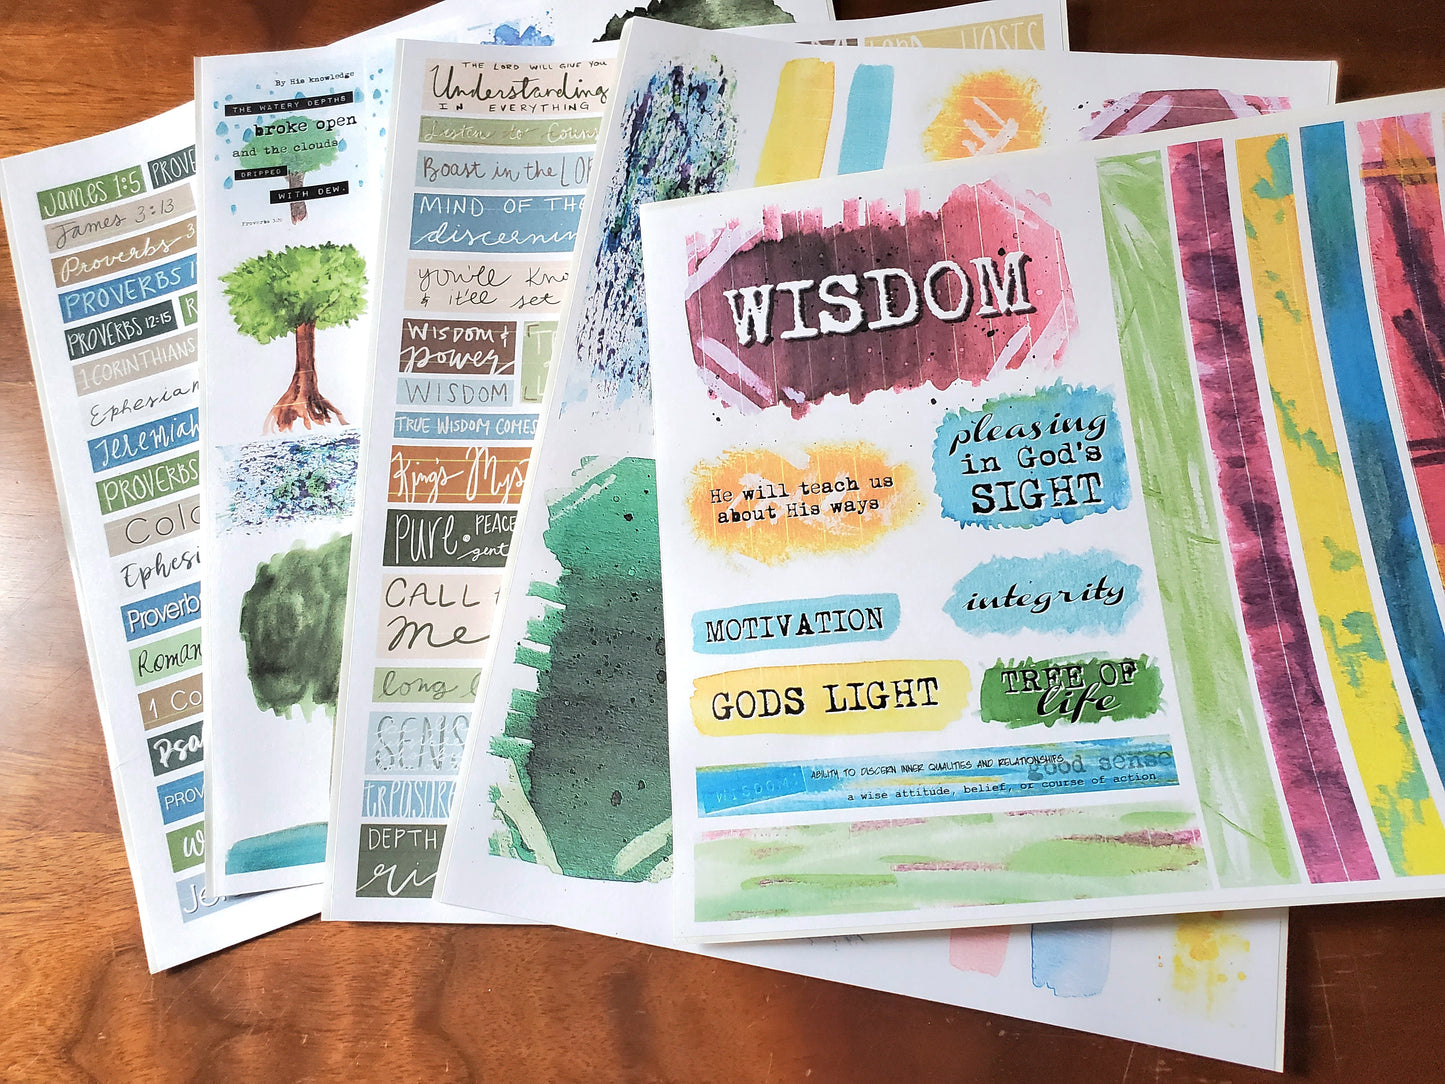 James 1:5
PROVE
James 3:13
Proverbs 3
PROVERBS 1
PROVERBS 12:15
R
1 CORINTHIANS
Ephesian
Jeremiah
PROVERBS
Colo
Ephesi
Proverbs
Roman
1 Co
Psa
PROV
W
Je
By His knowledge
THE WATERY DEPTHS
broke open
and the clouds
DRIPPED
WITH DEW.
Proverbs 3:20
THE LORD WILL GIVE YOU
Understanding
IN EVERYTHING
Listen to Couns
Boast in the LOR
MIND OF THE
discernin
you'll kno
& it'll set
WISDOM +
power
WISDOM
TRUE WISDOM COMES
King's Myst
PURE • PEACE
gent
CALL
me
long l
SENS
treasure
DEPTH
ri
LORD HOSTS
WISDOM
pleasing
in God's
SIGHT
He will teach us
about His ways
integrity
MOTIVATION
GODS LIGHT
TREE OF
life
WISDOM:
ABILITY TO DISCERN INNER QUALITIES AND RELATIONSHIPS
good sense
a wise attitude, belief, or course of action